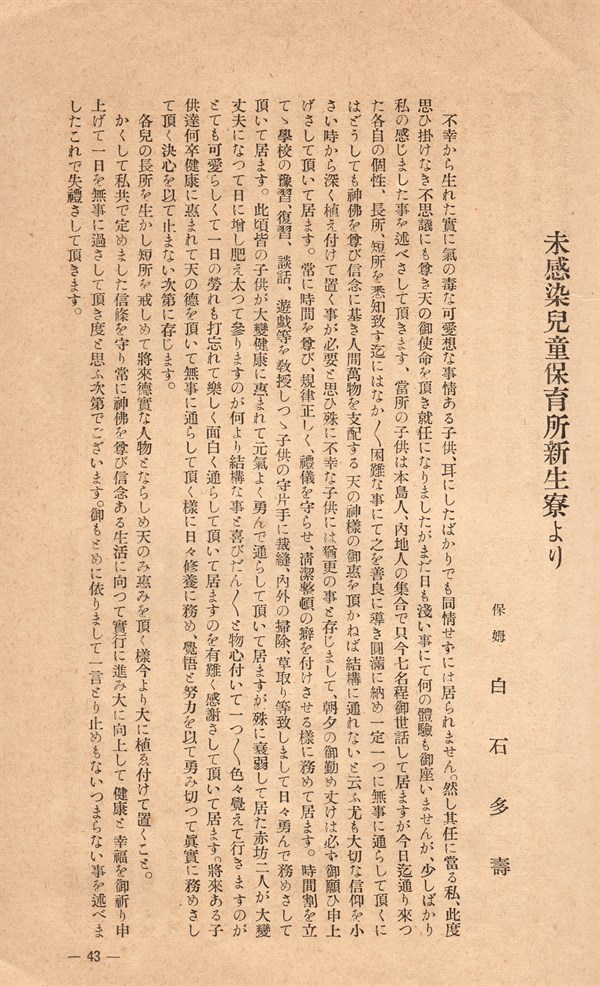 未感染兒童保育所新生寮より
保姆 白石多壽
不幸から生れた實に氣の毒な可愛想な事情ある子供、耳にしたばかりでも同情せずには居られません。然し其任に當る私、此度
思ひ掛けなき不思議にも尊き天の御使命を頂き就任になりましたがまだ日も淺い事にて何の體驗も御座いませんが、少しばかり
私の感じました事を述べさして頂きます、當所の子供は本島人、內地人の集合で只今七名程御世話して居ますが今日迄通り來つ
た各自の個性、長所、短所を悉知致す迄にはなか〳〵困難な事にて之を善良に導き圓滿に納め一定一つに無事に通らして頂くに
はどうしても神佛を尊び信念に基き人間萬物を支配する天の神樣の御惠を頂かねば結構に通れないと云ふ尤も大切な信仰を小
さい時から深く植え付けて置く事が必要と思ひ殊に不幸な子供には猶更の事と存じまして、朝夕の御勤め丈けは必ず御願ひ申上
げさして頂いて居ます。常に時間を尊び、規律正しく、禮儀を守らせ、淸潔整頓の癖を付けさせる樣に務めて居ます。時間割を立
てゝ學校の豫習、復習、談話、遊戲等を敎授しつゝ子供の守片手に裁縫、內外の掃除、草取り等致しまして日々勇んで務めさして
頂いて居ます。此頃皆の子供が大變健康に惠まれて元氣よく勇んで通らして頂いて居ますが、殊に衰弱して居た赤坊二人が大變
丈夫になつて日に增し肥え太つて參りますのが何より結構な事と喜びだん〳〵と物心付いて一つ〳〵色々覺えて行きますのが
とても可愛らしくて一日の勞れも打忘れて樂しく面白く通らして頂いて居ますのを有難く感謝さして頂いて居ます。將來ある子
供達何卒健康に惠まれて天の德を頂いて無事に通らして頂く樣に日々修養に務め、覺悟と努力を以て勇み切つて眞實に務めさし
て頂く決心を以て止まない次第に存じます。
各兒の長所を生かし短所を戒しめて將來德實な人物とならしめ天のみ惠みを頂く樣今より大に植ゑ付けて置くこと。
かくして私共で定めました信條を守り常に神佛を尊び信念ある生活に向つて實行に進み大に向上して健康と幸福を御祈り申
上げて一日を無事に過さして頂き度と思ふ次第でございます。御もとめに依りまして一言とり止めもないつまらない事を述べま
したこれで失禮さして頂きます。
— 43 —